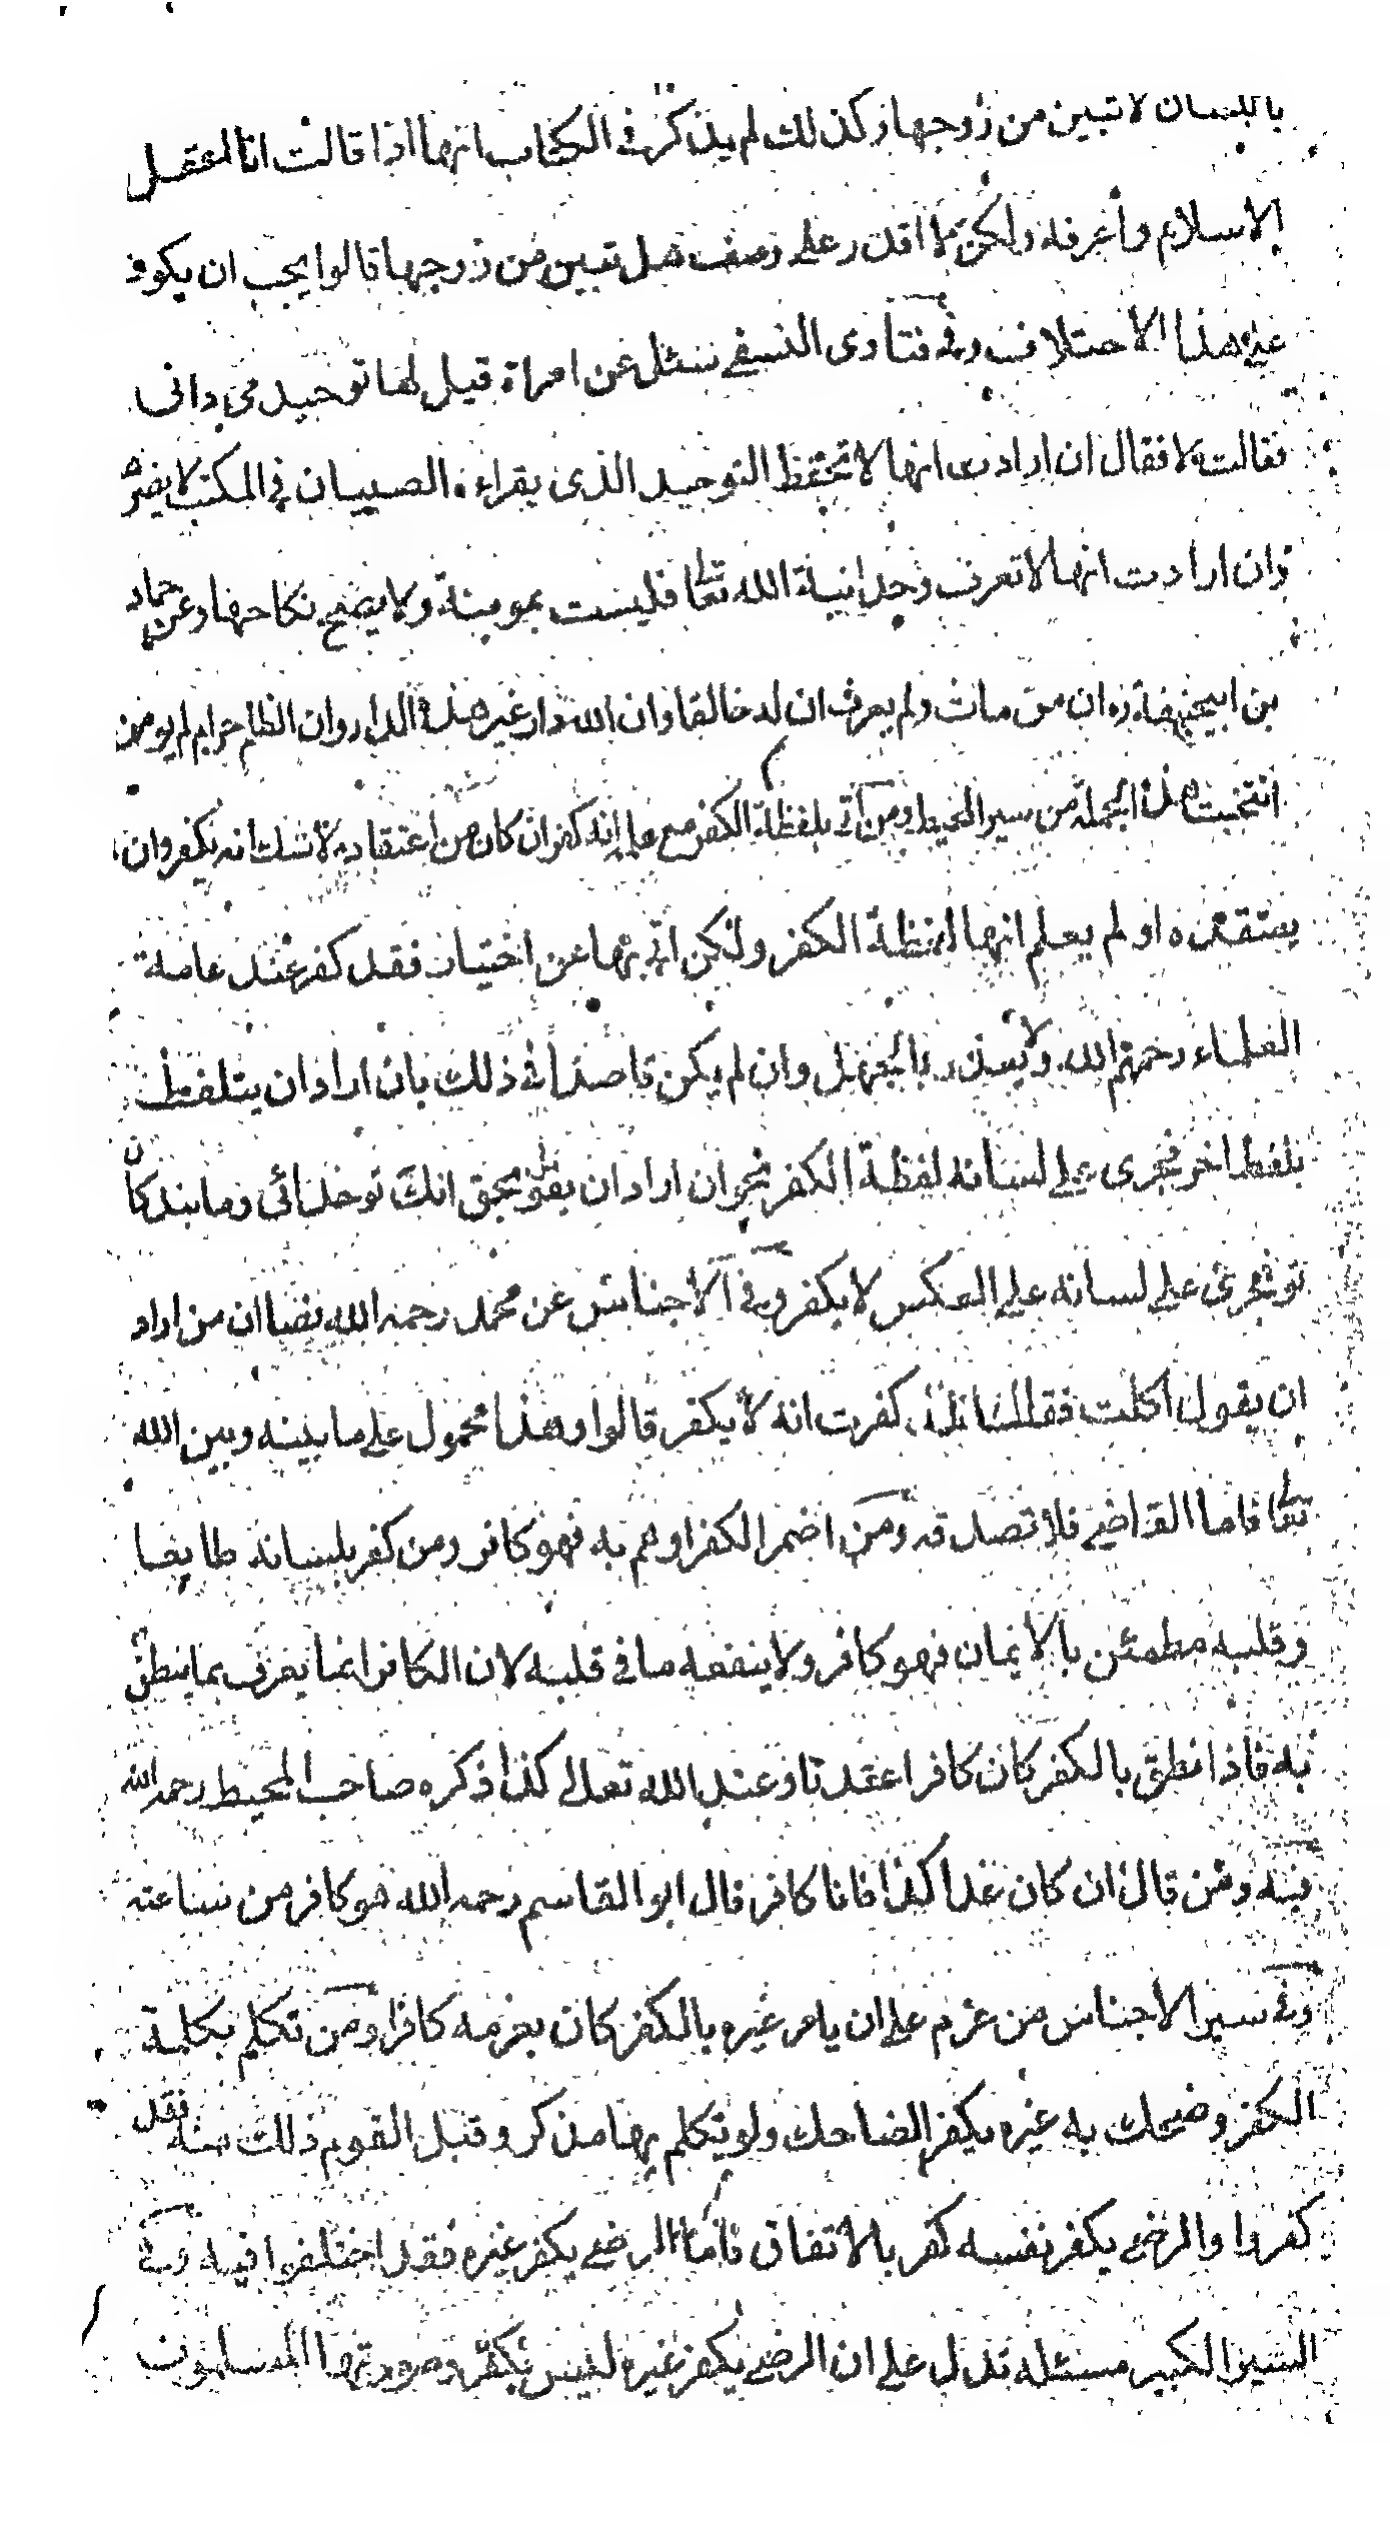 باللسان لا تبين من زوجها وكذلك لم يذكر في الكتاب انها اذا قالت انا اعقل
الاسلام واعرفه ولكن لا اقدر على وصفه هل تبين من زوجها قالوا يجب ان يكون
على هذا الاختلاف وفي فتاوى النسفي سئل عن امراة قيل لها توحيد مي داني
فقالت لا فقال ان ارادت انها لا تحفظ التوحيد الذي يقراءه الصبيان في المكتب لا يضرها
وان ارادت انها لا تعرف وحدانية الله تعا فليست بمومنة ولا يصح نكاحها وعن حماد
بن ابي حنيفة ره ان من مات ولم يعرف ان له خالقا وان الله دار غير هذه الدار وان الظلم حرام لم يومن
انتخبت هذه الجملة من سير المحيط ومن اتى بلفظة الكفر مع علمه انه كفر ان كان عن اعتقاد به لا شك انه يكفر وان لم
يعتقده او لم يعلم انها لفظة الكفر ولكن اتى بها عن اختيار فقد كفر عند عامة
العلماء رحمهم الله ولا يعذر بالجهل وان لم يكن قاصدا في ذلك بان اراد ان يتلفظ
بلفظ اخر فجرى على لسانه لفظة الكفر نحو ان اراد ان يقول بحق انك توخدائي وما بندكان
تو فجرى على لسانه على العكس لا يكفر وفي الاجناس عن محمد رحمه الله نصا ان من اراد
ان يقول اكلت فقال كفرت انه لا يكفر قالوا وهذا محمول على ما بينه وبين الله
تعا فاما القاضي فلا تصدقه ومن اضمر الكفر او هم به فهو كافر ومن كفر بلسانه طايعا
وقلبه مطمئن بالايمان فهو كافر ولا ينفعه ما في قلبه لان الكافر انما يعرف بما ينطق
به فاذا نطق بالكفر كان كافرا عندنا وعند الله تعالى كذا ذكره صاحب المحيط رحمه الله
فيه ومن قال ان كان غدا كذا فانا كافر قال ابو القاسم رحمه الله هو كافر من ساعته
وفي سير الاجناس من عزم على ان يامر غيره بالكفر كان بعزمه كافرا ومن تكلم بكلمة
الكفر وضحك به غيره يكفر الضاحك ولو تكلم بها مذكر وقبل القوم ذلك منه فقد
كفروا والرضى بكفر نفسه كفر بالاتفاق فاما الرضى بكفر غيره فقد اختلفوا فيه وفي
السير الكبير مسئلة تدل على ان الرضى بكفر غيره ليس بكفر وصورتها المسلمون